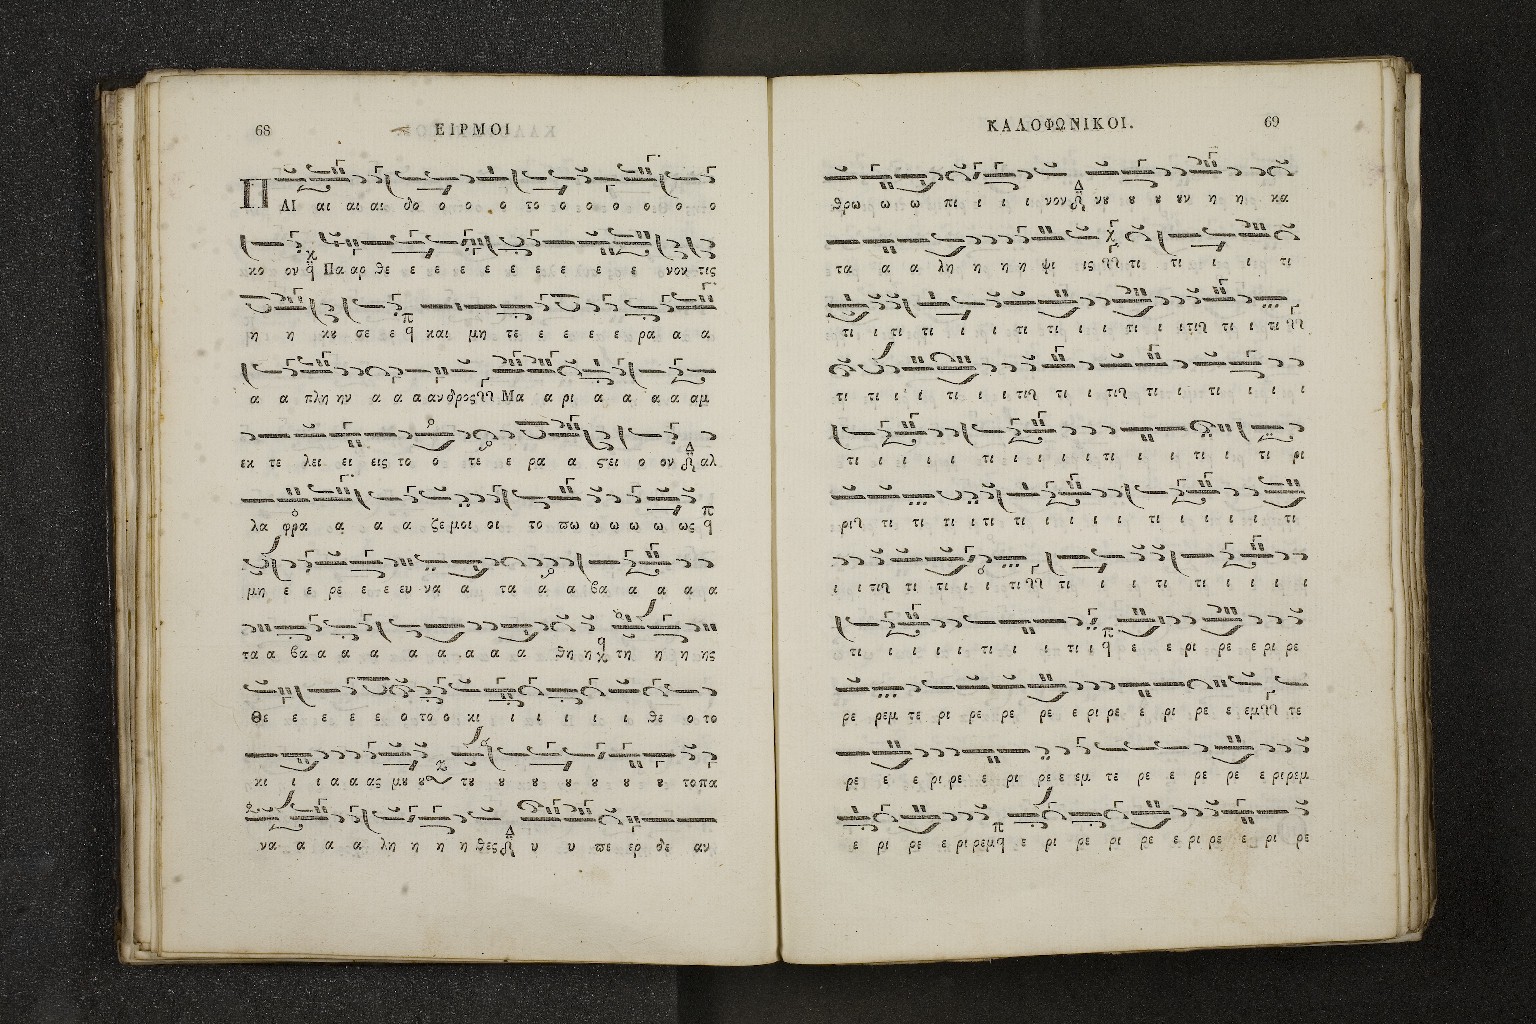 68 ΕΙΡΜΟΙ
ΠΑΙ αι αι αι δο ο ο ο το ο ο ο ο ο ο
κο ον Πα αρ θε ε ε ε ε ε ε ε ε ε ε νοκ τις
η η κυ σε ε και μη τε ε ε ε ε ε ρα α α
α α πλη ην α α α αν δρος Μα α ρι α α α α αμ
εκ τε λει ει εις το ο τε ε ρα α ςει ο ον αλ
λα φρα α α α ζε μοι οι το πω ω ω ω ω ως
μη ε ε ρε ε ε ευ να α τα α α βα α α α α
τα α βα α α α α α α α α θη η τη η η ης
Θε ε ε ε ε ο το ο κι ι ι ι ι ι θε ο το
κι ι ι α α ας μȣ ȣ τȣ ȣ ȣ ȣ ȣ ȣ ȣ ȣ το πα
να α α α λη η η η θες υ υ πε ερ δε αν
ΚΑΛΟΦΩΝΙΚΟΙ. 69
θρω ω ω πι ι ι ι νον νȣ ȣ ȣ ȣν η η κα
τα α α λη η η η ψι ις τι τι ι ι τι
τι ι τι τι ι ι τι τι ι ι τι ι ι τι τι ι τι
τι τι ι ι τι ι ι τι τι ι τι τι ι ι ι
τι ι ι ι ι τι ι ι ι ι τι ι ι τι ι τι ρι
ρι τι τι τι ι τι τι ι ι ι τι ι ι ι ι τι
ι ι τι τι τι ι ι τι τι ι ι τι τι ι ι ι ι
τι ι ι ι ι τι ι ι τι ι ε ε ρι ρε ε ρι ρε
ρε ρεμ τε ρι ρε ρε ρε ε ρι ρε ε ρι ρε ε εμ τε
ρε ε ε ρι ρε ε ρι ρε ε εμ τε ρε ε ρε ρε ε ρι ρεμ
ε ρι ρε ε ρι ρεμ ε ρι ρε ρι ρε ε ρι ρε ε ρι ρε